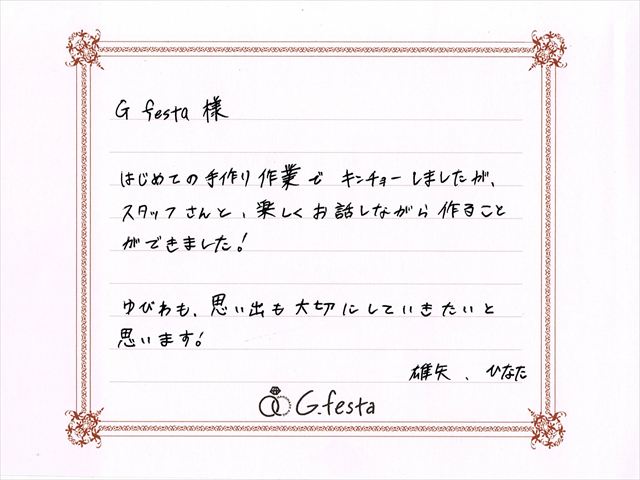 G festa 様
はじめての手作り作業で キンチョーしましたが、
スタッフさんと、楽しくお話しながら作ること
ができました!
ゆびわも、思い出も大切にしていきたいと
思います!
雄矢、ひなた
G.festa